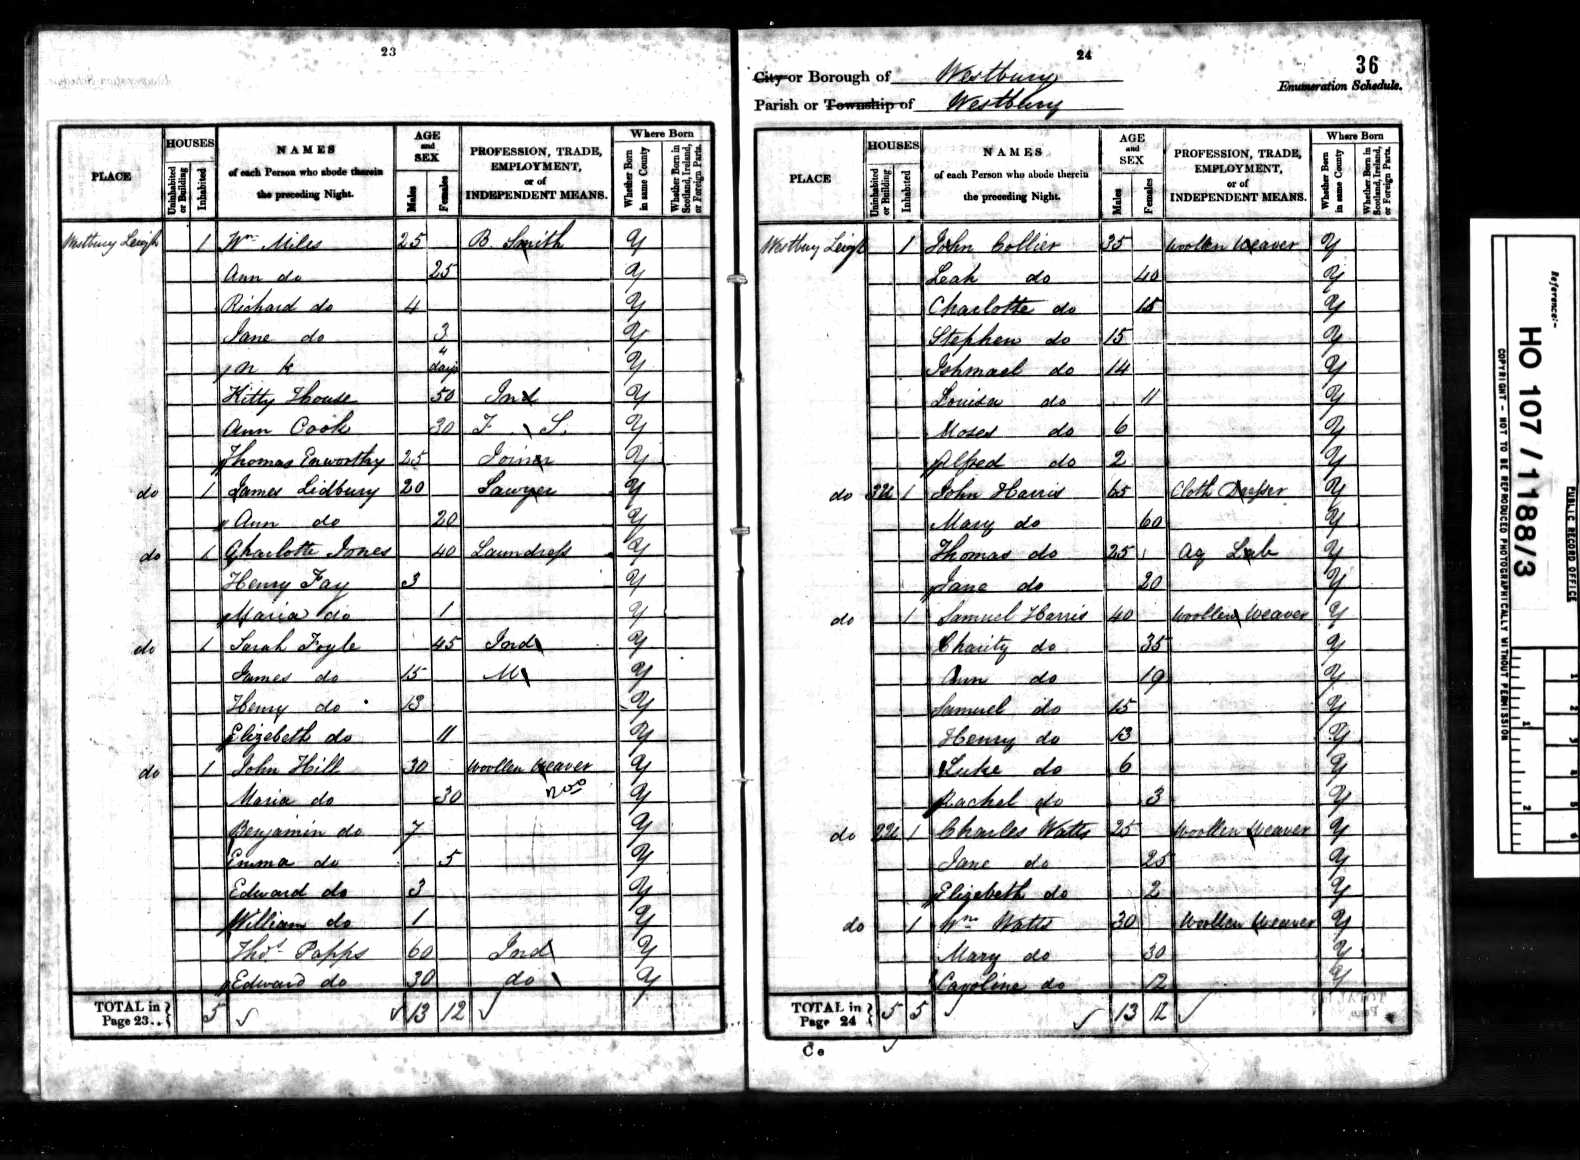 23
PLACE
HOUSES
Uninhabited or Building
Inhabited
NAMES
of each Person who abode therein
the preceding Night.
AGE
and
SEX
Males
Females
PROFESSION, TRADE,
EMPLOYMENT,
or of
INDEPENDENT MEANS.
Where Born
Whether Born in same County
Whether Born in Scotland, Ireland, or Foreign Parts.
Westbury Leigh 1 Wm Miles 25 B. Smith Y
Ann do 25 Y
Richard do 4 Y
Jane do 3 Y
days Y
Kitty House 50 Ind Y
Ann Cook 30 F. S. Y
Thomas Enworthy 25 Joiner Y
do 1 James Lidbury 20 Sawyer Y
Ann do 20 Y
do 1 Charlotte Jones 40 Laundress Y
Henry Fay 3 Y
Maria do 1 Y
do 1 Sarah Foyle 45 Ind Y
James do 15 M Y
Henry do 13 Y
Elizebeth do 11 Y
do 1 John Hill 30 Woollen Weaver Y
Maria do 30 Y
Benjamin do 7 Y
Emma do 5 Y
Edward do 3 Y
William do 1 Y
Thos Papps 60 Ind Y
Edward do 30 do Y
TOTAL in Page 23.. 5 13 12
24
36
City or Borough of Westbury
Enumeration Schedule.
Parish or Township of Westbury
PLACE
HOUSES
Uninhabited or Building
Inhabited
NAMES
of each Person who abode therein
the preceding Night.
AGE
and
SEX
Males
Females
PROFESSION, TRADE,
EMPLOYMENT,
or of
INDEPENDENT MEANS.
Where Born
Whether Born in same County
Whether Born in Scotland, Ireland, or Foreign Parts.
Westbury Leigh 1 John Collier 35 Woollen Weaver Y
Leah do 40 Y
Charlotte do 15 Y
Stephen do 15 Y
Ishmael do 14 Y
Louisa do 11 Y
Moses do 6 Y
Alfred do 2 Y
do 3U 1 John Harris 65 Cloth Dresser Y
Mary do 60 Y
Thomas do 25 Ag Lab Y
Jane do 20 Y
do 1 Samuel Harris 40 Woollen Weaver Y
Charity do 35 Y
Ann do 19 Y
Samuel do 15 Y
Henry do 13 Y
Luke do 6 Y
Rachel do 3 Y
do 2U 1 Charles Watts 25 Woollen Weaver Y
Jane do 25 Y
Elizebeth do 2 Y
do 1 Wm Watts 30 Woollen Weaver Y
Mary do 30 Y
Caroline do 12 Y
TOTAL in Page 24 5 5 13 12
C e
Reference:-
HO 107/1188/3
COPYRIGHT - NOT TO BE REPRODUCED PHOTOGRAPHICALLY WITHOUT PERMISSION
PUBLIC RECORD OFFICE